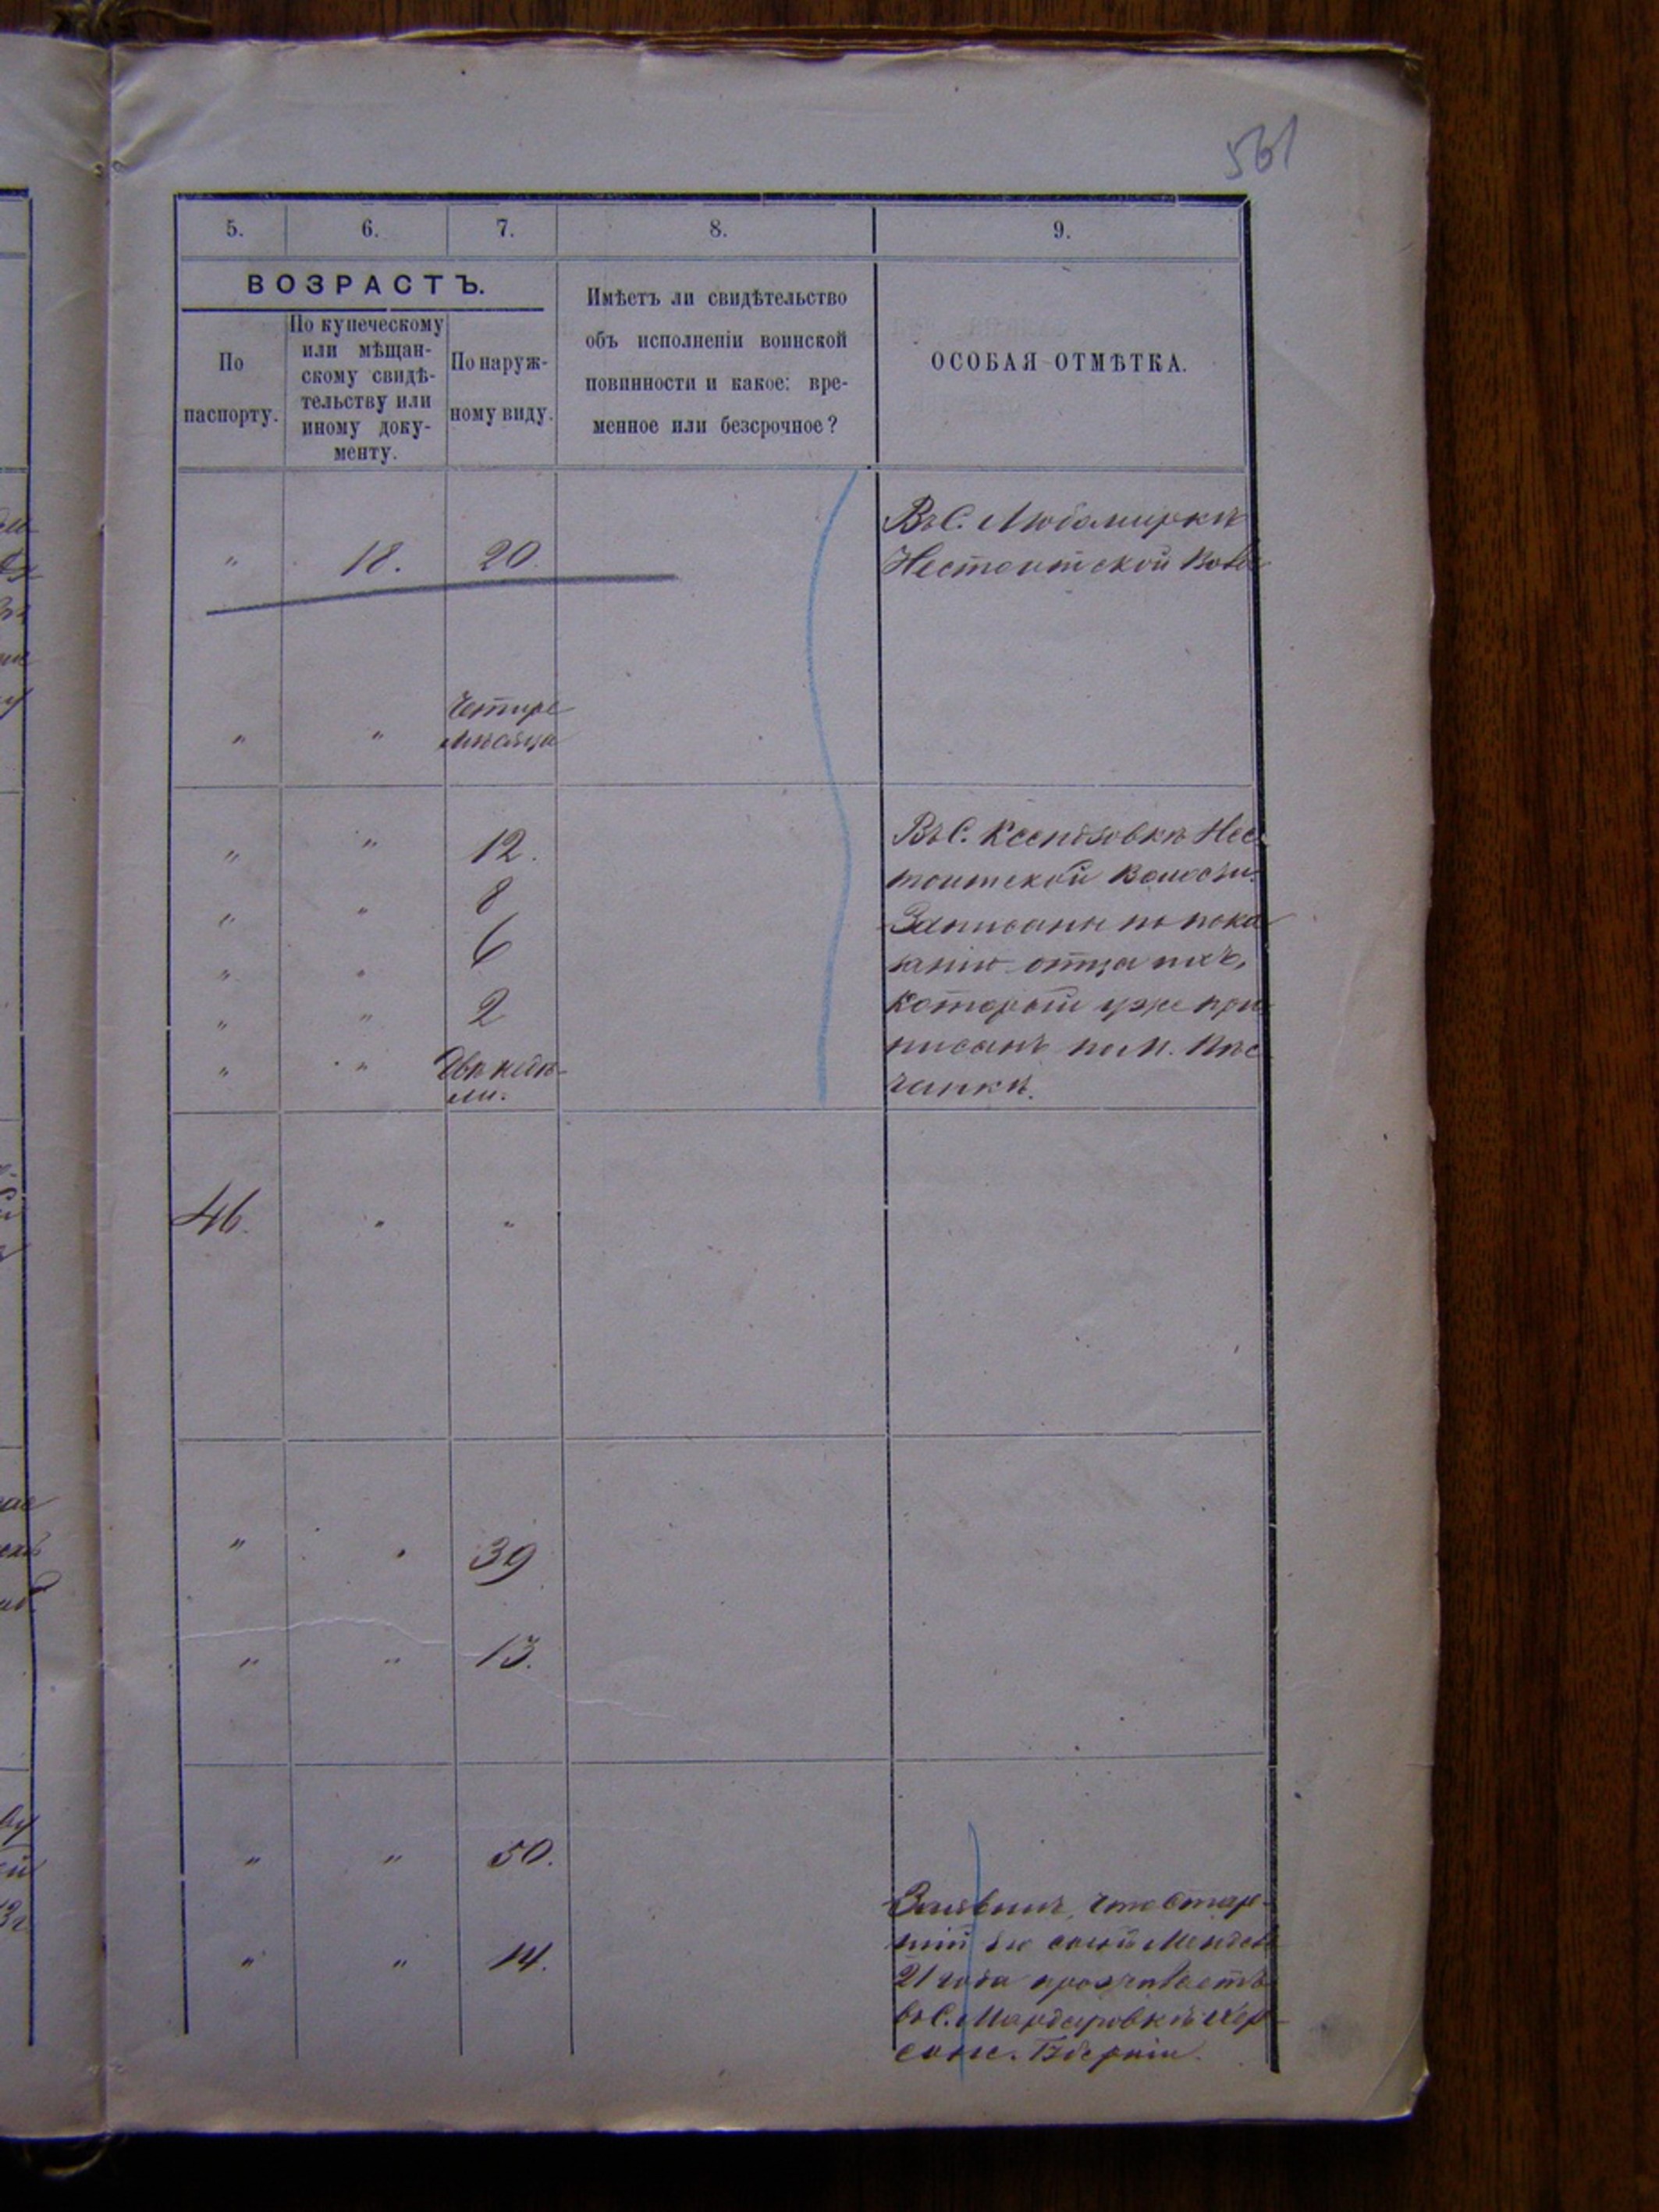 561
5. 6. 7. 8. 9.
ВОЗРАСТЪ.
По
паспорту.
По купеческому
или мѣщан-
скому свидѣ-
тельству или
иному доку-
менту.
По наруж-
ному виду.
Имѣетъ ли свидѣтельство
объ исполненіи воинской
повинности и какое: вре-
менное или безсрочное?
ОСОБАЯ ОТМѢТКА.
" 18. 20.
Въ С. Любомиркѣ
Нестоитской
" " Четире
мѣсяца
" " 12.
" " 8
" " 6
" " 2
" " Двѣ недѣ-
ли.
Въ С. Ксендзовкѣ Нес-
тоитской Волости.
Записаны по пока
занію отца ихъ,
который уже при
писанъ по м. Пѣс
чанкѣ.
46. " "
" " 39
" " 13.
" " 50.
" " 14.
Заявилъ, что стар-
шій
21 года проживаетъ
въ С. Мардаровкѣ Хер-
сонс. Губерніи.